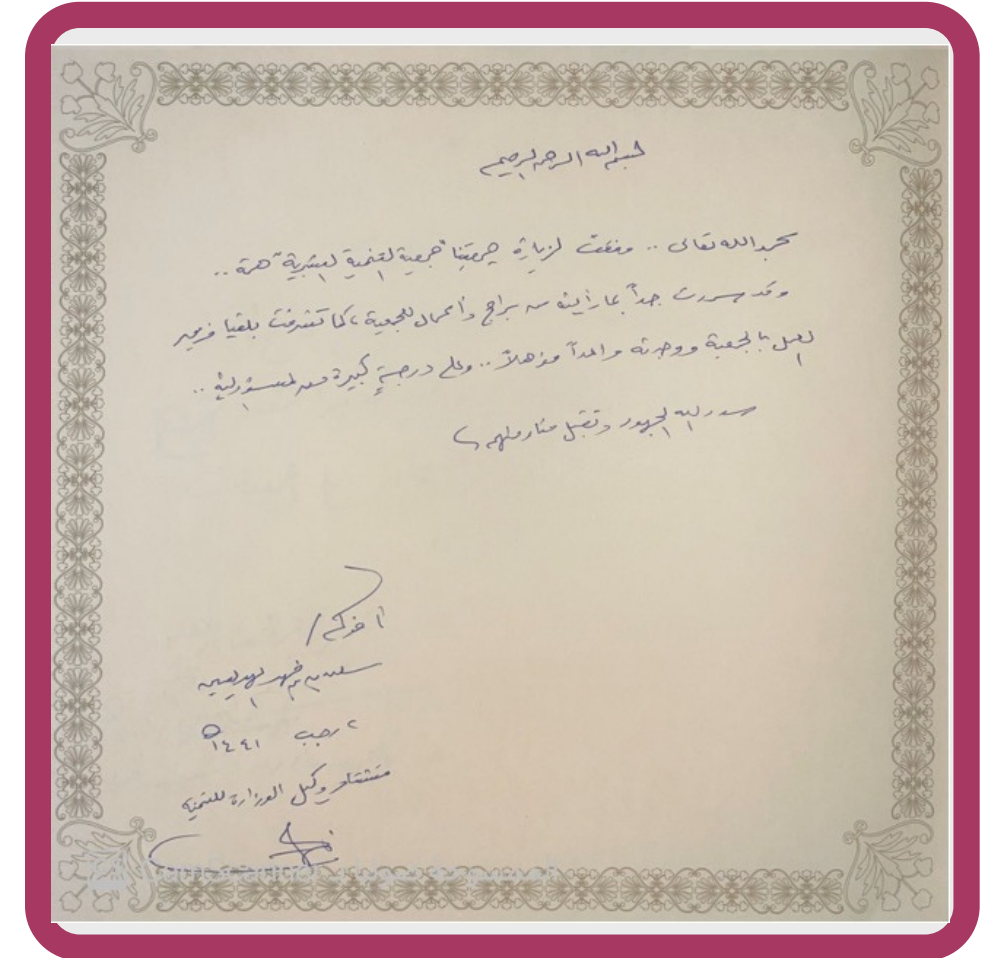 بسم الله الرحمن الرحيم
بحمد الله تعالى .. وفقت لزيارة جمعيتنا "جمعية التنمية البشرية" همة ..
وقد سررت جداً بما رأيته من برامج وأعمال للجمعية، كما تشرفت بلقيا فريق
العمل بالجمعية ووجدته واعداً مؤهلاً .. وعلى درجة كبيرة من المسؤولية ..
سدد الله الجهود وتقبل منا ومنهم
أخوكم /
بن فهد
رجب ١٤٤١هـ
مستشار وكيل الوزارة للتنمية
CamScanner الممسوحة ضوئيا بـ